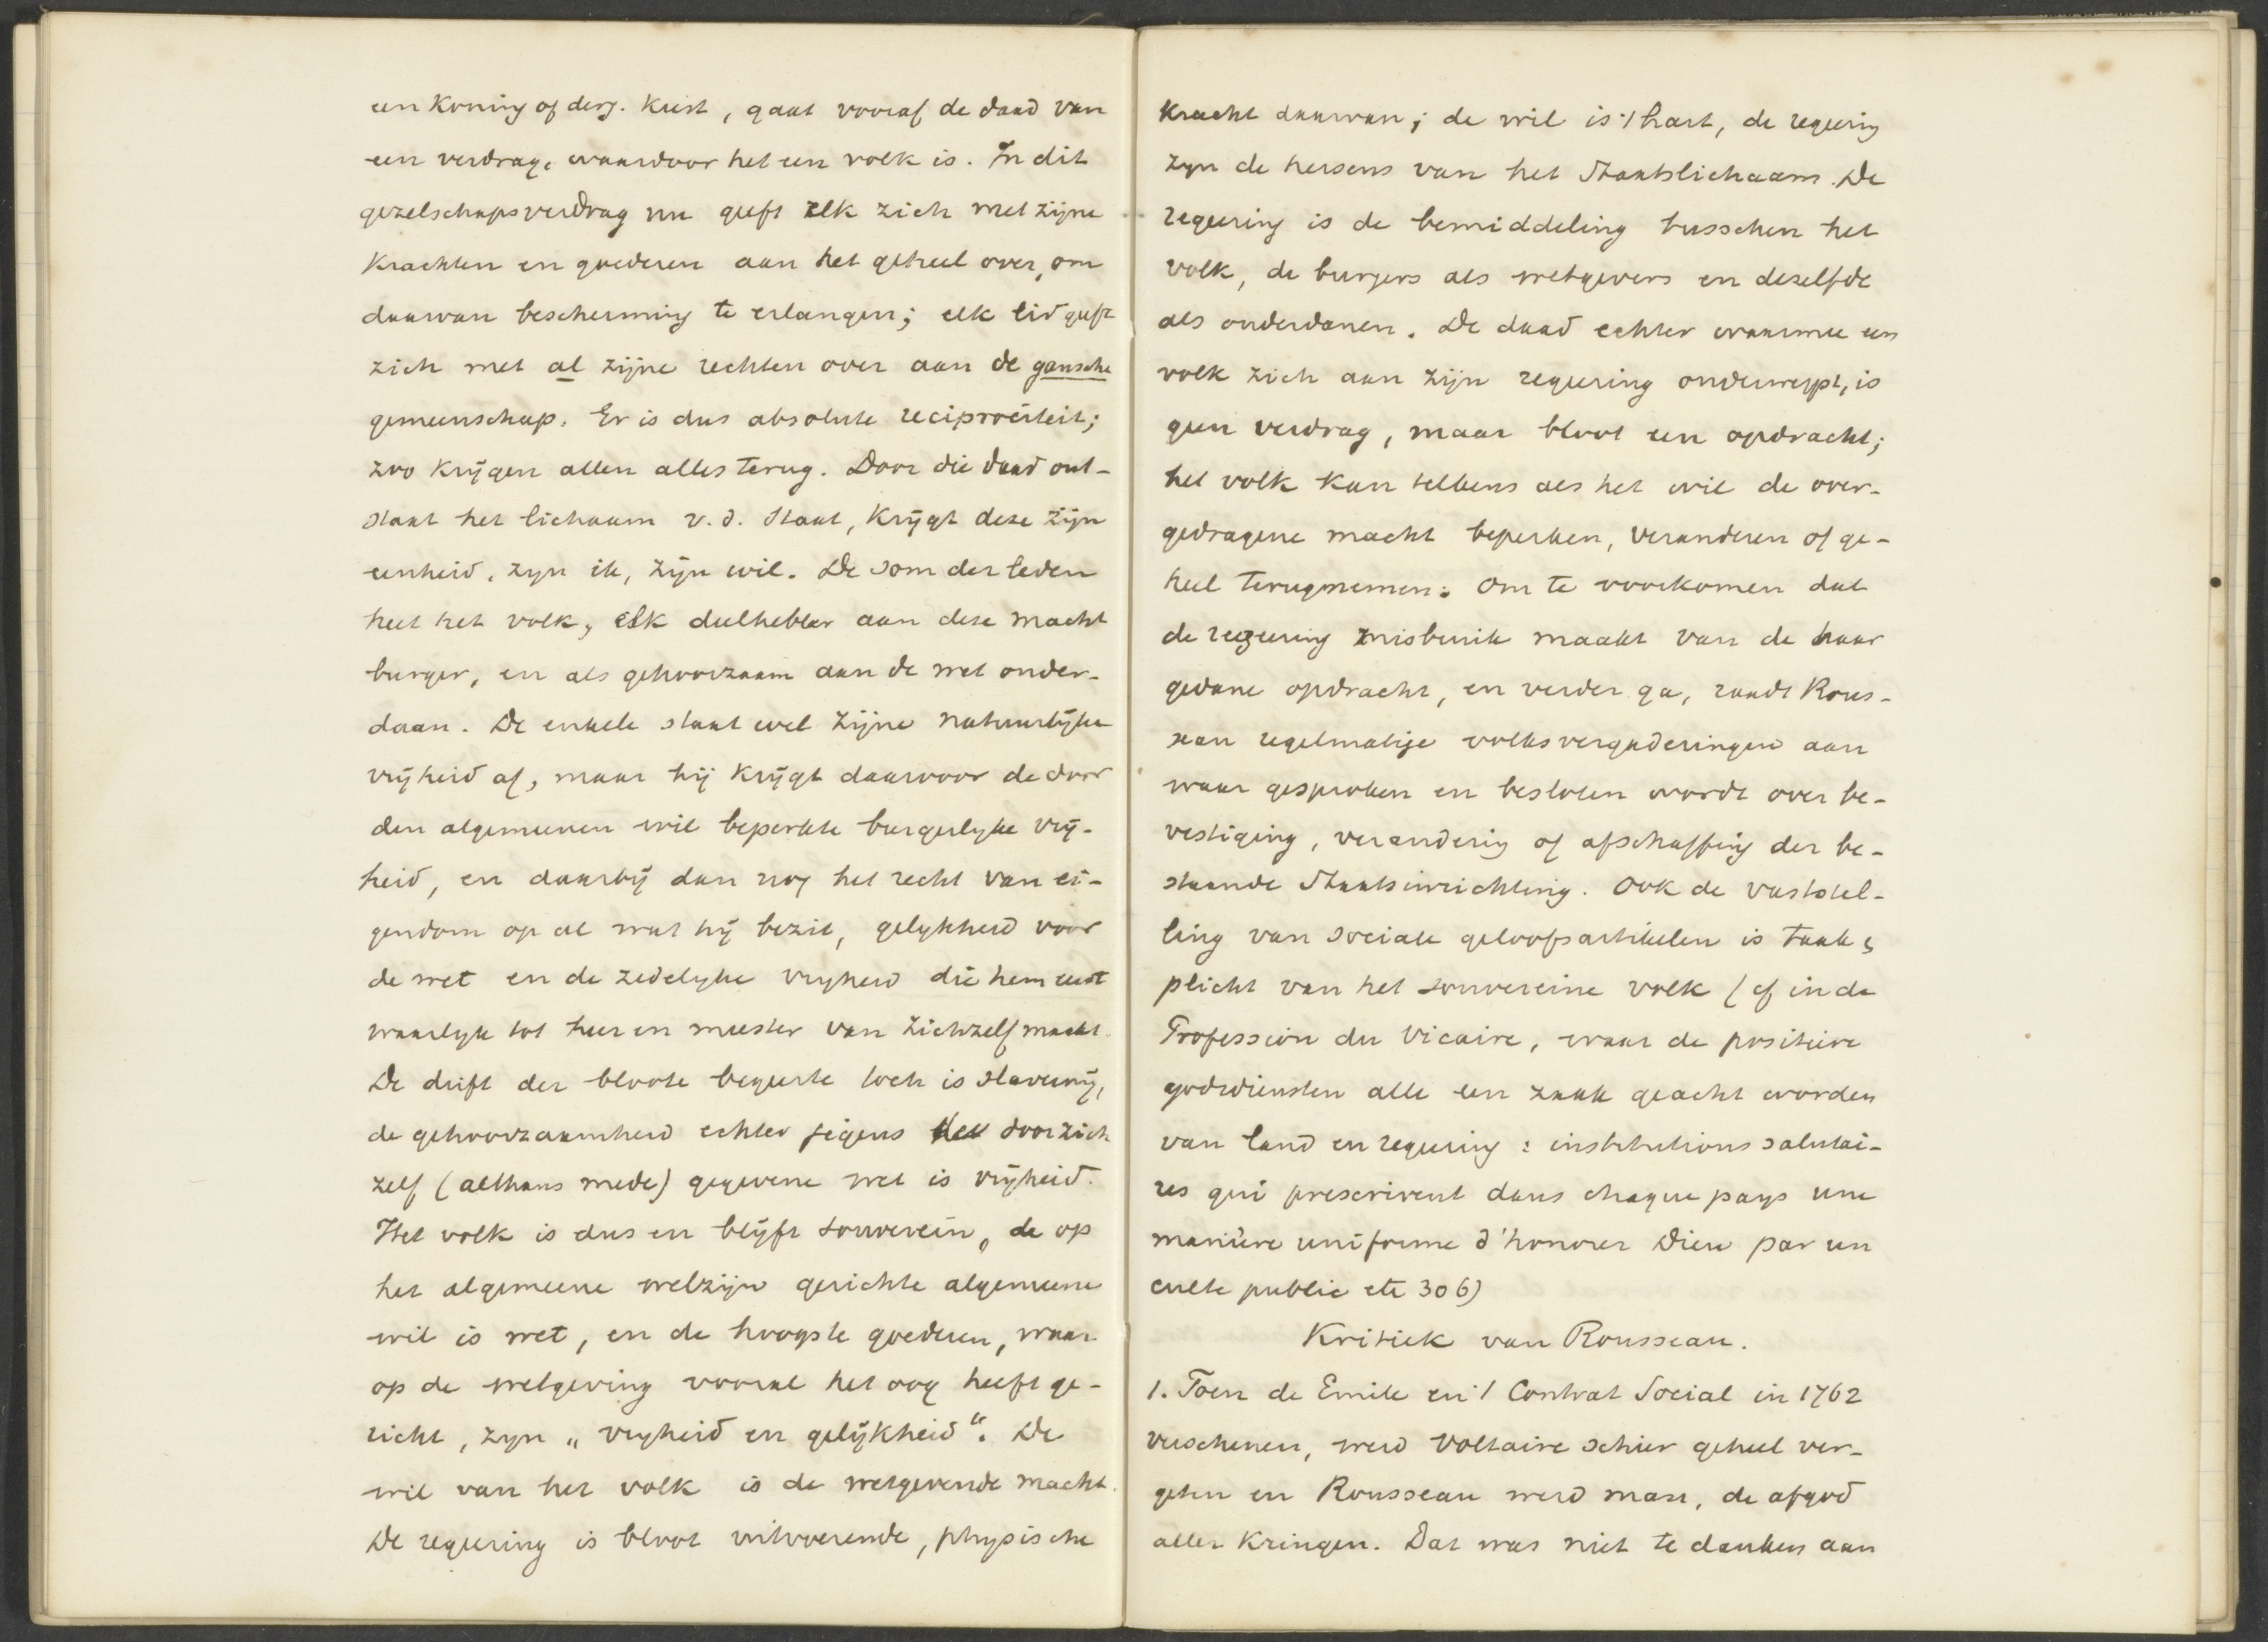 een Koning of derg. Kiest, gaat vooraf de daad van
een verdrag, waardoor het een volk is. In dit
gezelschapsverdrag nu geeft elk zich met zijne
Krachten en goederen aan het geheel over, om
daarvan bescherming te erlangen; elk lid geeft
zich met al zijne rechten over aan de gansche
gemeenschap. Er is dus absolute reciprociteit;
zoo Krijgen allen alles terug. Door die daad ont-
staat het lichaam v. d. Staat, Krijgt deze zijn
eenheid, zijn ik, zijn wil. De som der leden
heet het volk, elk deelhebber aan deze macht
burger, en als gehoorzaam aan de wet onder-
daan. De enkele staat wel zijne natuurlijke
vrijheid af, maar hij Krijgt daarvoor de door
den algemeenen wil beperkte burgerlijke vrij-
heid, en daarbij dan nog het recht van ei-
gendom op al wat hij bezit, gelijkheid voor
de wet en de zedelijke vrijheid die hem eerst
waarlijk tot heer en meester van zichzelf maakt.
De drift der bloote begeerte toch is slavernij,
de gehoorzaamheid echter jegens de door zich
zelf (althans mede) gegevene wet is vrijheid.
Het volk is dus en blijft souverein, de op
het algemeene welzijn gerichte algemeene
wil is wet, en de hoogste goederen, waar
op de wetgeving vooral het oog heeft ge-
richt, zijn „vrijheid en gelijkheid“. De
wil van het volk is de wetgevende macht.
De regeering is bloot uitvoerende, physische
Kracht daarvan; de wil is 't hart, de regeering
zijn de hersens van het Staatslichaam. De
regeering is de bemiddeling tusschen het
volk, de burgers als wetgevers en dezelfde
als onderdanen. De daad echter waarmee een
volk zich aan zijn regeering onderwerpt, is
geen verdrag, maar bloot een opdracht;
het volk kan telkens als het wil de over-
gedragene macht beperken, veranderen of ge-
heel terugnemen. Om te voorkomen dat
de regeering misbruik maakt van de haar
gedane opdracht, en verder ga, raadt Rous-
seau regelmatige volksvergaderingen aan
waar gesproken en besloten wordt over be-
vestiging, verandering of afschaffing der be-
staande Staatsinrichting. Ook de vaststel-
ling van sociale geloofsartikelen is taak &
plicht van het souvereine volk (cf in de
Profession du Vicaire, waar de positieve
godsdiensten alle een zaak geacht worden
van land en regeering: institutions salutai-
res qui prescrivent dans chaque pays une
manière uniforme d'honorer Dieu par un
culte public etc 306)
Kritiek van Rousseau.
1. Toen de Emile en 't Contrat Social in 1762
verschenen, werd Voltaire schier geheel ver-
geten en Rousseau werd man, de afgod
aller Kringen. Dat was niet te danken aan